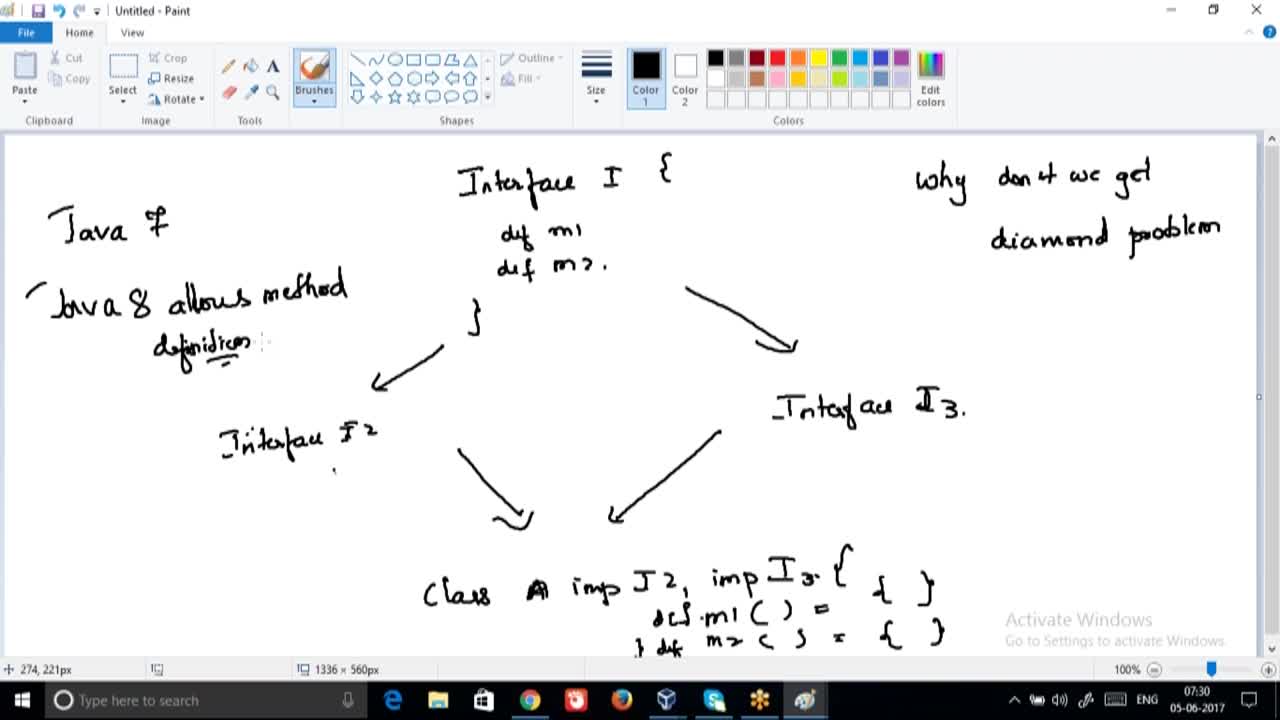 Untitled - Paint
File
Home
View
Paste
Cut
Copy
Clipboard
Select
Crop
Resize
Rotate
Image
Tools
Brushes
Shapes
Outline
Fill
Size
Color 1
Color 2
Edit colors
Colors
Interface I {
def m1
def m2.
}
why don't we get
diamond problem
Java 7
Java 8 allows method
definition
Interface I2
Interface I3.
Class A imp I2, imp I3. {
def m1 ( ) = { }
} def m2 ( ) = { }
Activate Windows
Go to Settings to activate Windows.
274, 221px
1336 × 560px
100%
Type here to search
ENG
07:30
05-06-2017